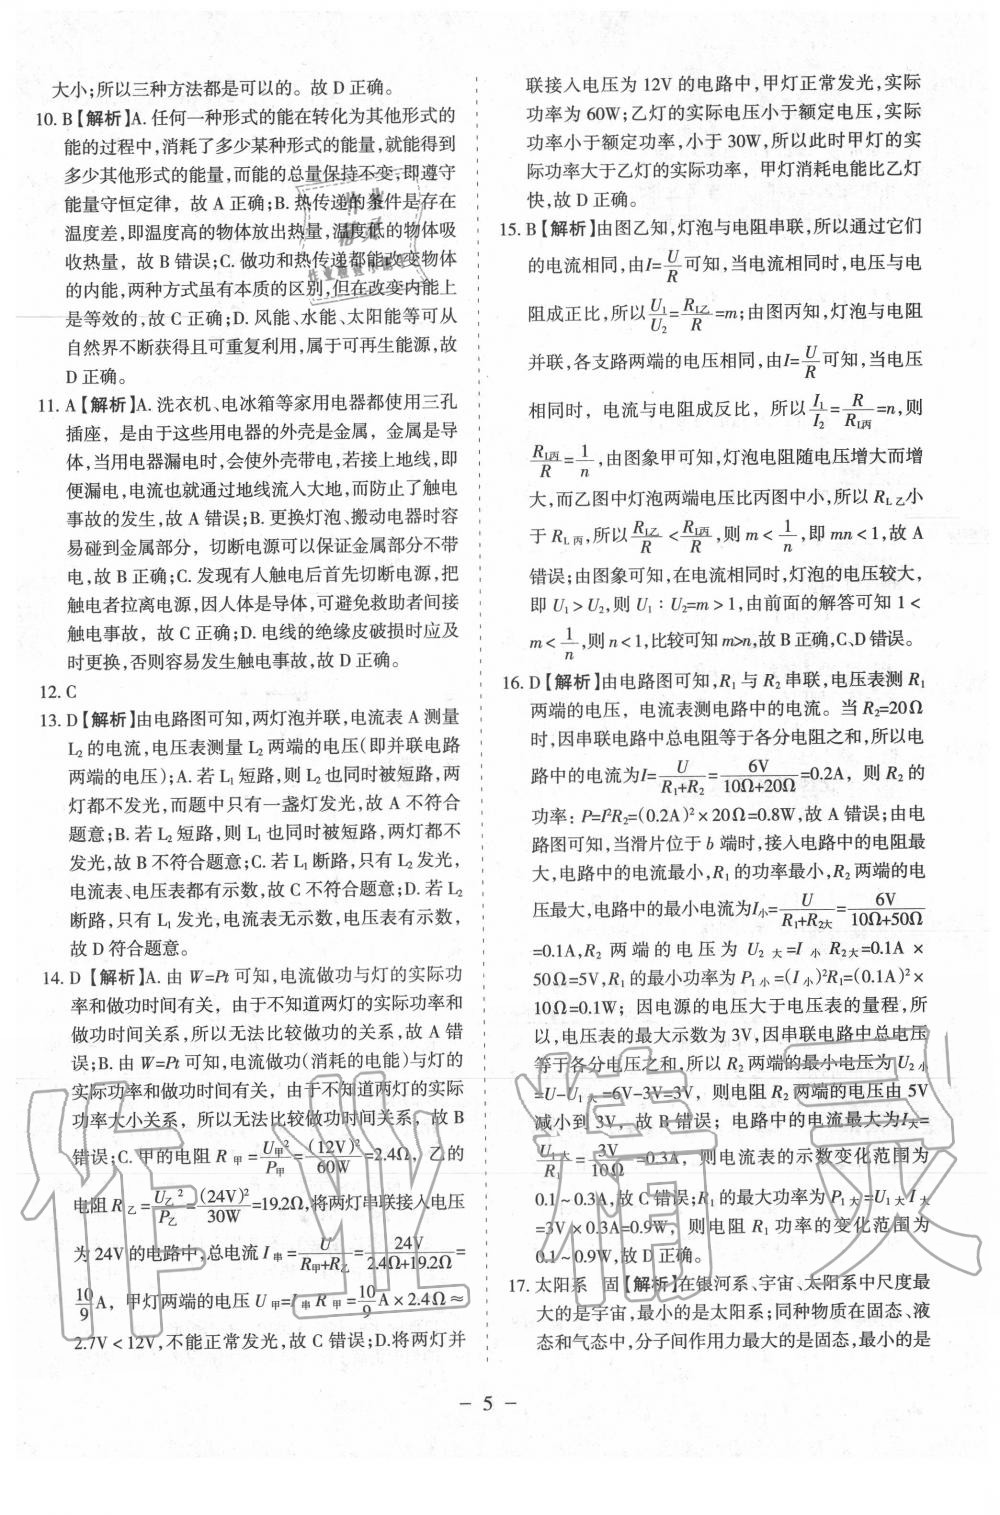 大小;所以三种方法都是可以的。故 D 正确。
10. B【解析】A. 任何一种形式的能在转化为其他形式的
能的过程中,消耗了多少某种形式的能量,就能得到
多少其他形式的能量,而能的总量保持不变,即遵守
能量守恒定律，故 A 正确;B. 热传递的条件是存在
温度差,即温度高的物体放出热量,温度低的物体吸
收热量，故 B 错误;C. 做功和热传递都能改变物体
的内能,两种方式虽有本质的区别,但在改变内能上
是等效的,故 C 正确;D. 风能、水能、太阳能等可从
自然界不断获得且可重复利用,属于可再生能源,故
D 正确。
11. A【解析】A. 洗衣机、电冰箱等家用电器都使用三孔
插座，是由于这些用电器的外壳是金属，金属是导
体,当用电器漏电时,会使外壳带电,若接上地线,即
便漏电,电流也就通过地线流入大地,而防止了触电
事故的发生,故 A 错误;B. 更换灯泡、搬动电器时容
易碰到金属部分，切断电源可以保证金属部分不带
电,故 B 正确;C. 发现有人触电后首先切断电源,把
触电者拉离电源,因人体是导体,可避免救助者间接
触电事故，故 C 正确;D. 电线的绝缘皮破损时应及
时更换,否则容易发生触电事故,故 D 正确。
12. C
13. D【解析】由电路图可知,两灯泡并联,电流表 A 测量
L₂ 的电流,电压表测量 L₂ 两端的电压(即并联电路
两端的电压);A. 若 L₁ 短路,则 L₂ 也同时被短路,两
灯都不发光,而题中只有一盏灯发光,故 A 不符合
题意;B. 若 L₂ 短路,则 L₁ 也同时被短路,两灯都不
发光,故 B 不符合题意;C. 若 L₁ 断路,只有 L₂ 发光,
电流表、电压表都有示数,故 C 不符合题意;D. 若 L₂
断路,只有 L₁ 发光,电流表无示数,电压表有示数,
故 D 符合题意。
14. D【解析】A. 由 W=Pt 可知,电流做功与灯的实际功
率和做功时间有关，由于不知道两灯的实际功率和
做功时间关系,所以无法比较做功的关系,故 A 错
误;B. 由 W=Pt 可知,电流做功(消耗的电能)与灯的
实际功率和做功时间有关，由于不知道两灯的实际
功率大小关系，所以无法比较做功时间关系，故 B
错误;C. 甲的电阻 R甲=U甲²/P甲=(12V)²/60W=2.4Ω，乙的
电阻 R乙=U乙²/P乙=(24V)²/30W=19.2Ω,将两灯串联接入电压
为 24V 的电路中,总电流 I串=U/(R甲+R乙)=24V/(2.4Ω+19.2Ω)=
10/9 A，甲灯两端的电压 U甲=I串R甲=10/9 A×2.4Ω≈
2.7V<12V,不能正常发光,故 C 错误;D.将两灯并
联接入电压为 12V 的电路中,甲灯正常发光,实际
功率为 60W;乙灯的实际电压小于额定电压,实际
功率小于额定功率,小于 30W,所以此时甲灯的实
际功率大于乙灯的实际功率，甲灯消耗电能比乙灯
快,故 D 正确。
15. B【解析】由图乙知,灯泡与电阻串联,所以通过它们
的电流相同,由I=U/R可知,当电流相同时,电压与电
阻成正比,所以U₁/U₂=RL乙/R=m;由图丙知,灯泡与电阻
并联,各支路两端的电压相同,由I=U/R可知,当电压
相同时，电流与电阻成反比，所以I₁/I₂=R/RL丙=n,则
RL丙/R=1/n,由图象甲可知,灯泡电阻随电压增大而增
大,而乙图中灯泡两端电压比丙图中小,所以 RL乙小
于 RL丙,所以RL乙/R<RL丙/R,则 m<1/n,即 mn<1,故 A
错误;由图象可知,在电流相同时,灯泡的电压较大,
即 U₁>U₂,则 U₁∶U₂=m>1,由前面的解答可知 1<
m<1/n,则 n<1,比较可知 m>n,故 B 正确,C、D 错误。
16. D【解析】由电路图可知,R₁ 与 R₂ 串联,电压表测 R₁
两端的电压，电流表测电路中的电流。当 R₂=20Ω
时,因串联电路中总电阻等于各分电阻之和,所以电
路中的电流为I=U/(R₁+R₂)=6V/(10Ω+20Ω)=0.2A，则 R₂ 的
功率: P=I²R₂=(0.2A)²×20Ω=0.8W,故 A 错误;由电
路图可知,当滑片位于 b 端时,接入电路中的电阻最
大,电路中的电流最小,R₁ 的功率最小,R₂ 两端的电
压最大,电路中的最小电流为I小=U/(R₁+R₂大)=6V/(10Ω+50Ω)
=0.1A,R₂ 两端的电压为 U₂大=I小R₂大=0.1A×
50Ω=5V,R₁ 的最小功率为 P₁小=(I小)²R₁=(0.1A)²×
10Ω=0.1W；因电源的电压大于电压表的量程,所
以,电压表的最大示数为 3V,因串联电路中总电压
等于各分电压之和,所以 R₂ 两端的最小电压为 U₂小
=U-U₁大=6V-3V=3V，则电阻 R₂ 两端的电压由 5V
减小到 3V，故 B 错误；电路中的电流最大为I大=
U₁大/R₁=3V/10Ω=0.3A，则电流表的示数变化范围为
0.1~0.3A,故 C 错误;R₁的最大功率为 P₁大=U₁大I大
=3V×0.3A=0.9W，则电阻 R₁ 功率的变化范围为
0.1~0.9W,故 D 正确。
17. 太阳系 固【解析】在银河系、宇宙、太阳系中尺度最
大的是宇宙,最小的是太阳系;同种物质在固态、液
态和气态中,分子间作用力最大的是固态,最小的是
– 5 –
作业精灵